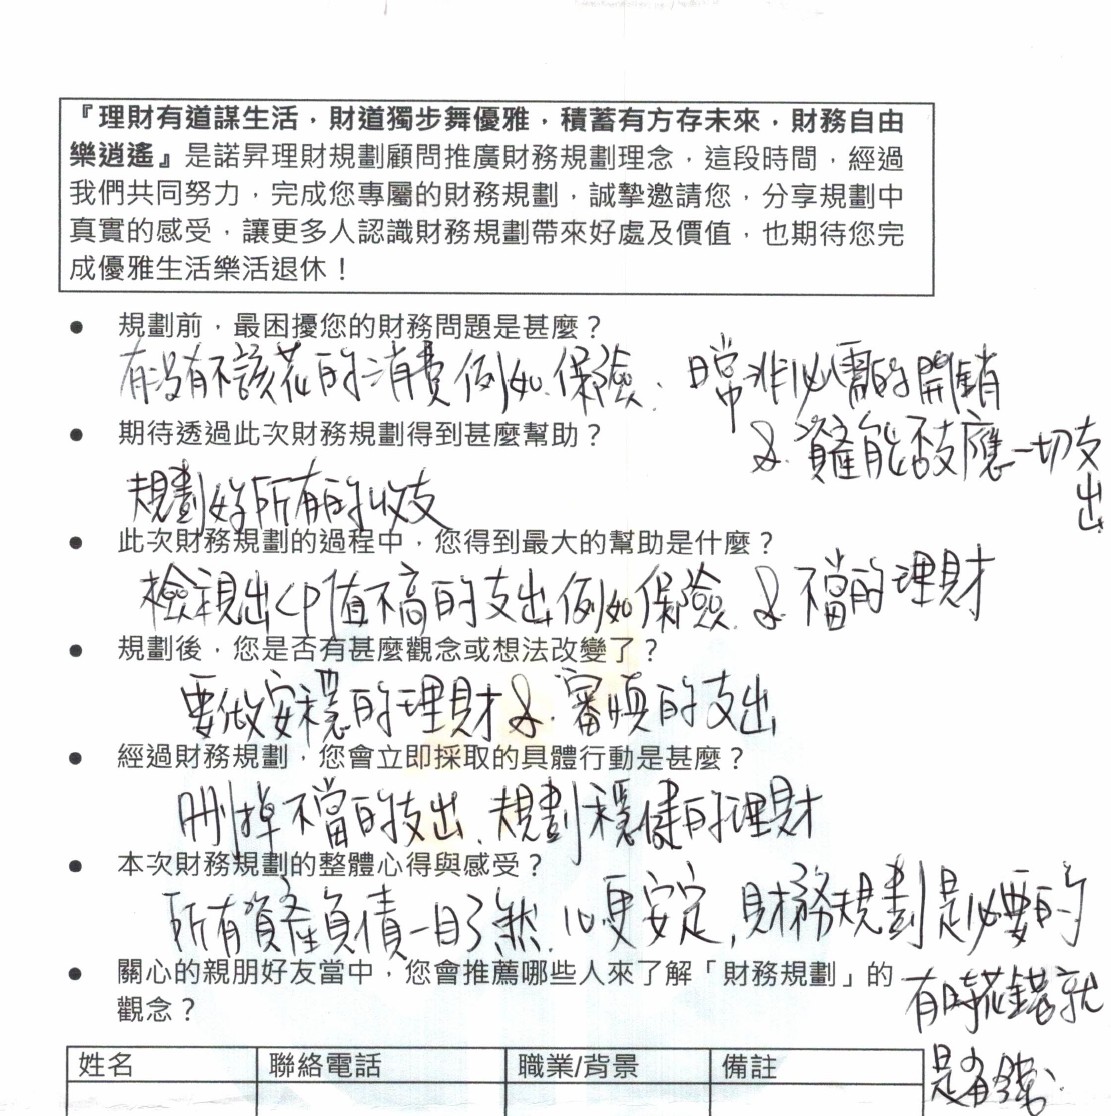 『理財有道謀生活，財道獨步舞優雅，積蓄有方存未來，財務自由
樂逍遙』是諾昇理財規劃顧問推廣財務規劃理念，這段時間，經過
我們共同努力，完成您專屬的財務規劃，誠摯邀請您，分享規劃中
真實的感受，讓更多人認識財務規劃帶來好處及價值，也期待您完
成優雅生活樂活退休！
● 規劃前，最困擾您的財務問題是甚麼？
有沒有不該花的消費例如.保險. 日常非必需的開銷
&.資產能否支應一切支
出.
● 期待透過此次財務規劃得到甚麼幫助？
規劃好所有的收支
● 此次財務規劃的過程中，您得到最大的幫助是什麼？
檢視出CP值不高的支出.例如保險.&.不當的理財
● 規劃後，您是否有甚麼觀念或想法改變了？
要做安穩的理財&.審慎的支出
● 經過財務規劃，您會立即採取的具體行動是甚麼？
刪掉不當的支出.規劃穩健的理財
● 本次財務規劃的整體心得與感受？
所有資產負債一目了然.心更安定,財務規劃是必要的
有時花錯就
是省錢.
● 關心的親朋好友當中，您會推薦哪些人來了解「財務規劃」的
觀念？
姓名 聯絡電話 職業/背景 備註